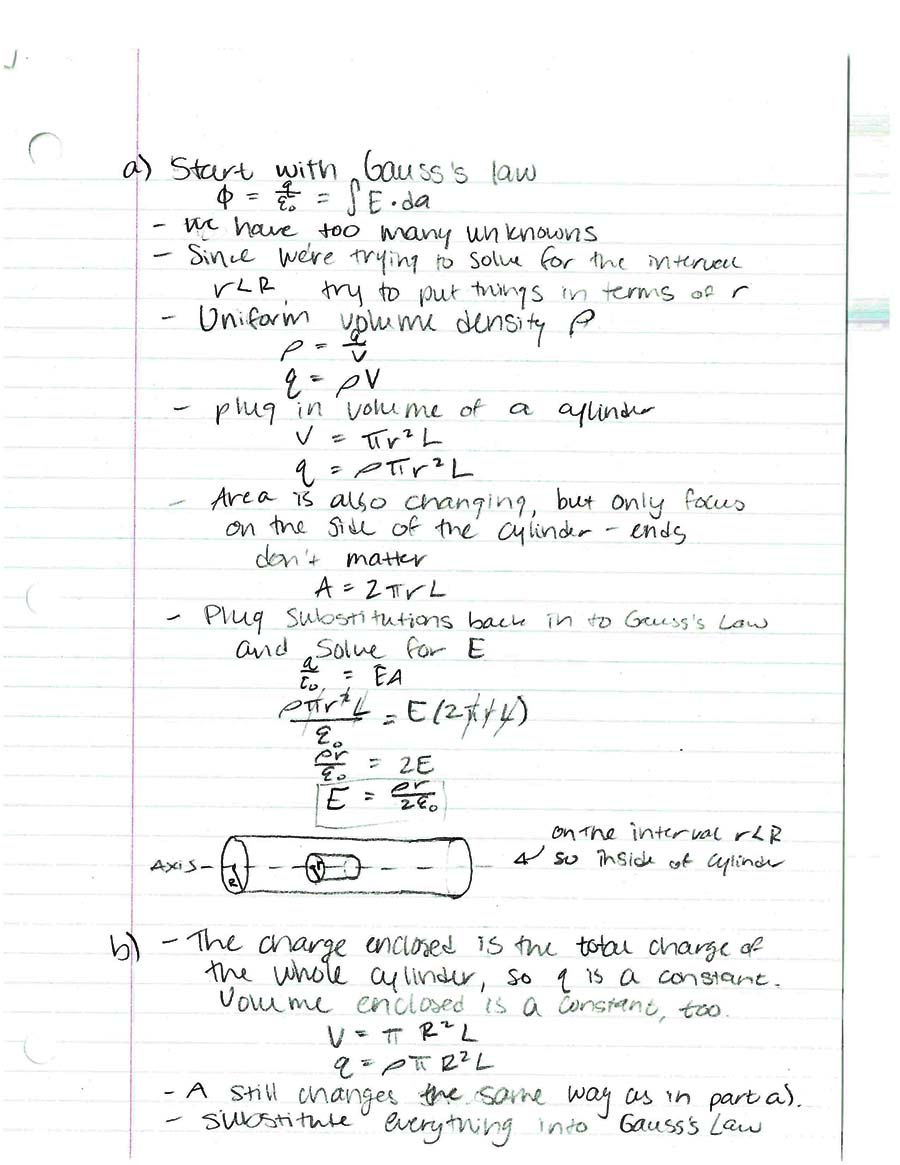 a) Start with Gauss's law
Φ = q/ε₀ = ∫E·da
- we have too many unknowns
- Since we're trying to solve for the interval
r<R, try to put things in terms of r
- Uniform volume density ρ
ρ = q/V
q = ρV
- plug in volume of a cylinder
V = πr²L
q = ρπr²L
- Area is also changing, but only focus
on the side of the cylinder - ends
don't matter
A = 2πrL
- Plug substitutions back in to Gauss's Law
and solve for E
q/ε₀ = EA
ρπr²L/ε₀ = E(2πrL)
ρr/ε₀ = 2E
E = ρr/2ε₀
on the interval r<R
so inside of cylinder
AXIS
R
r
b) - The charge enclosed is the total charge of
the whole cylinder, so q is a constant.
Volume enclosed is a constant, too.
V = π R²L
q = ρπ R²L
- A still changes the same way as in part a).
- substitute everything into Gauss's Law